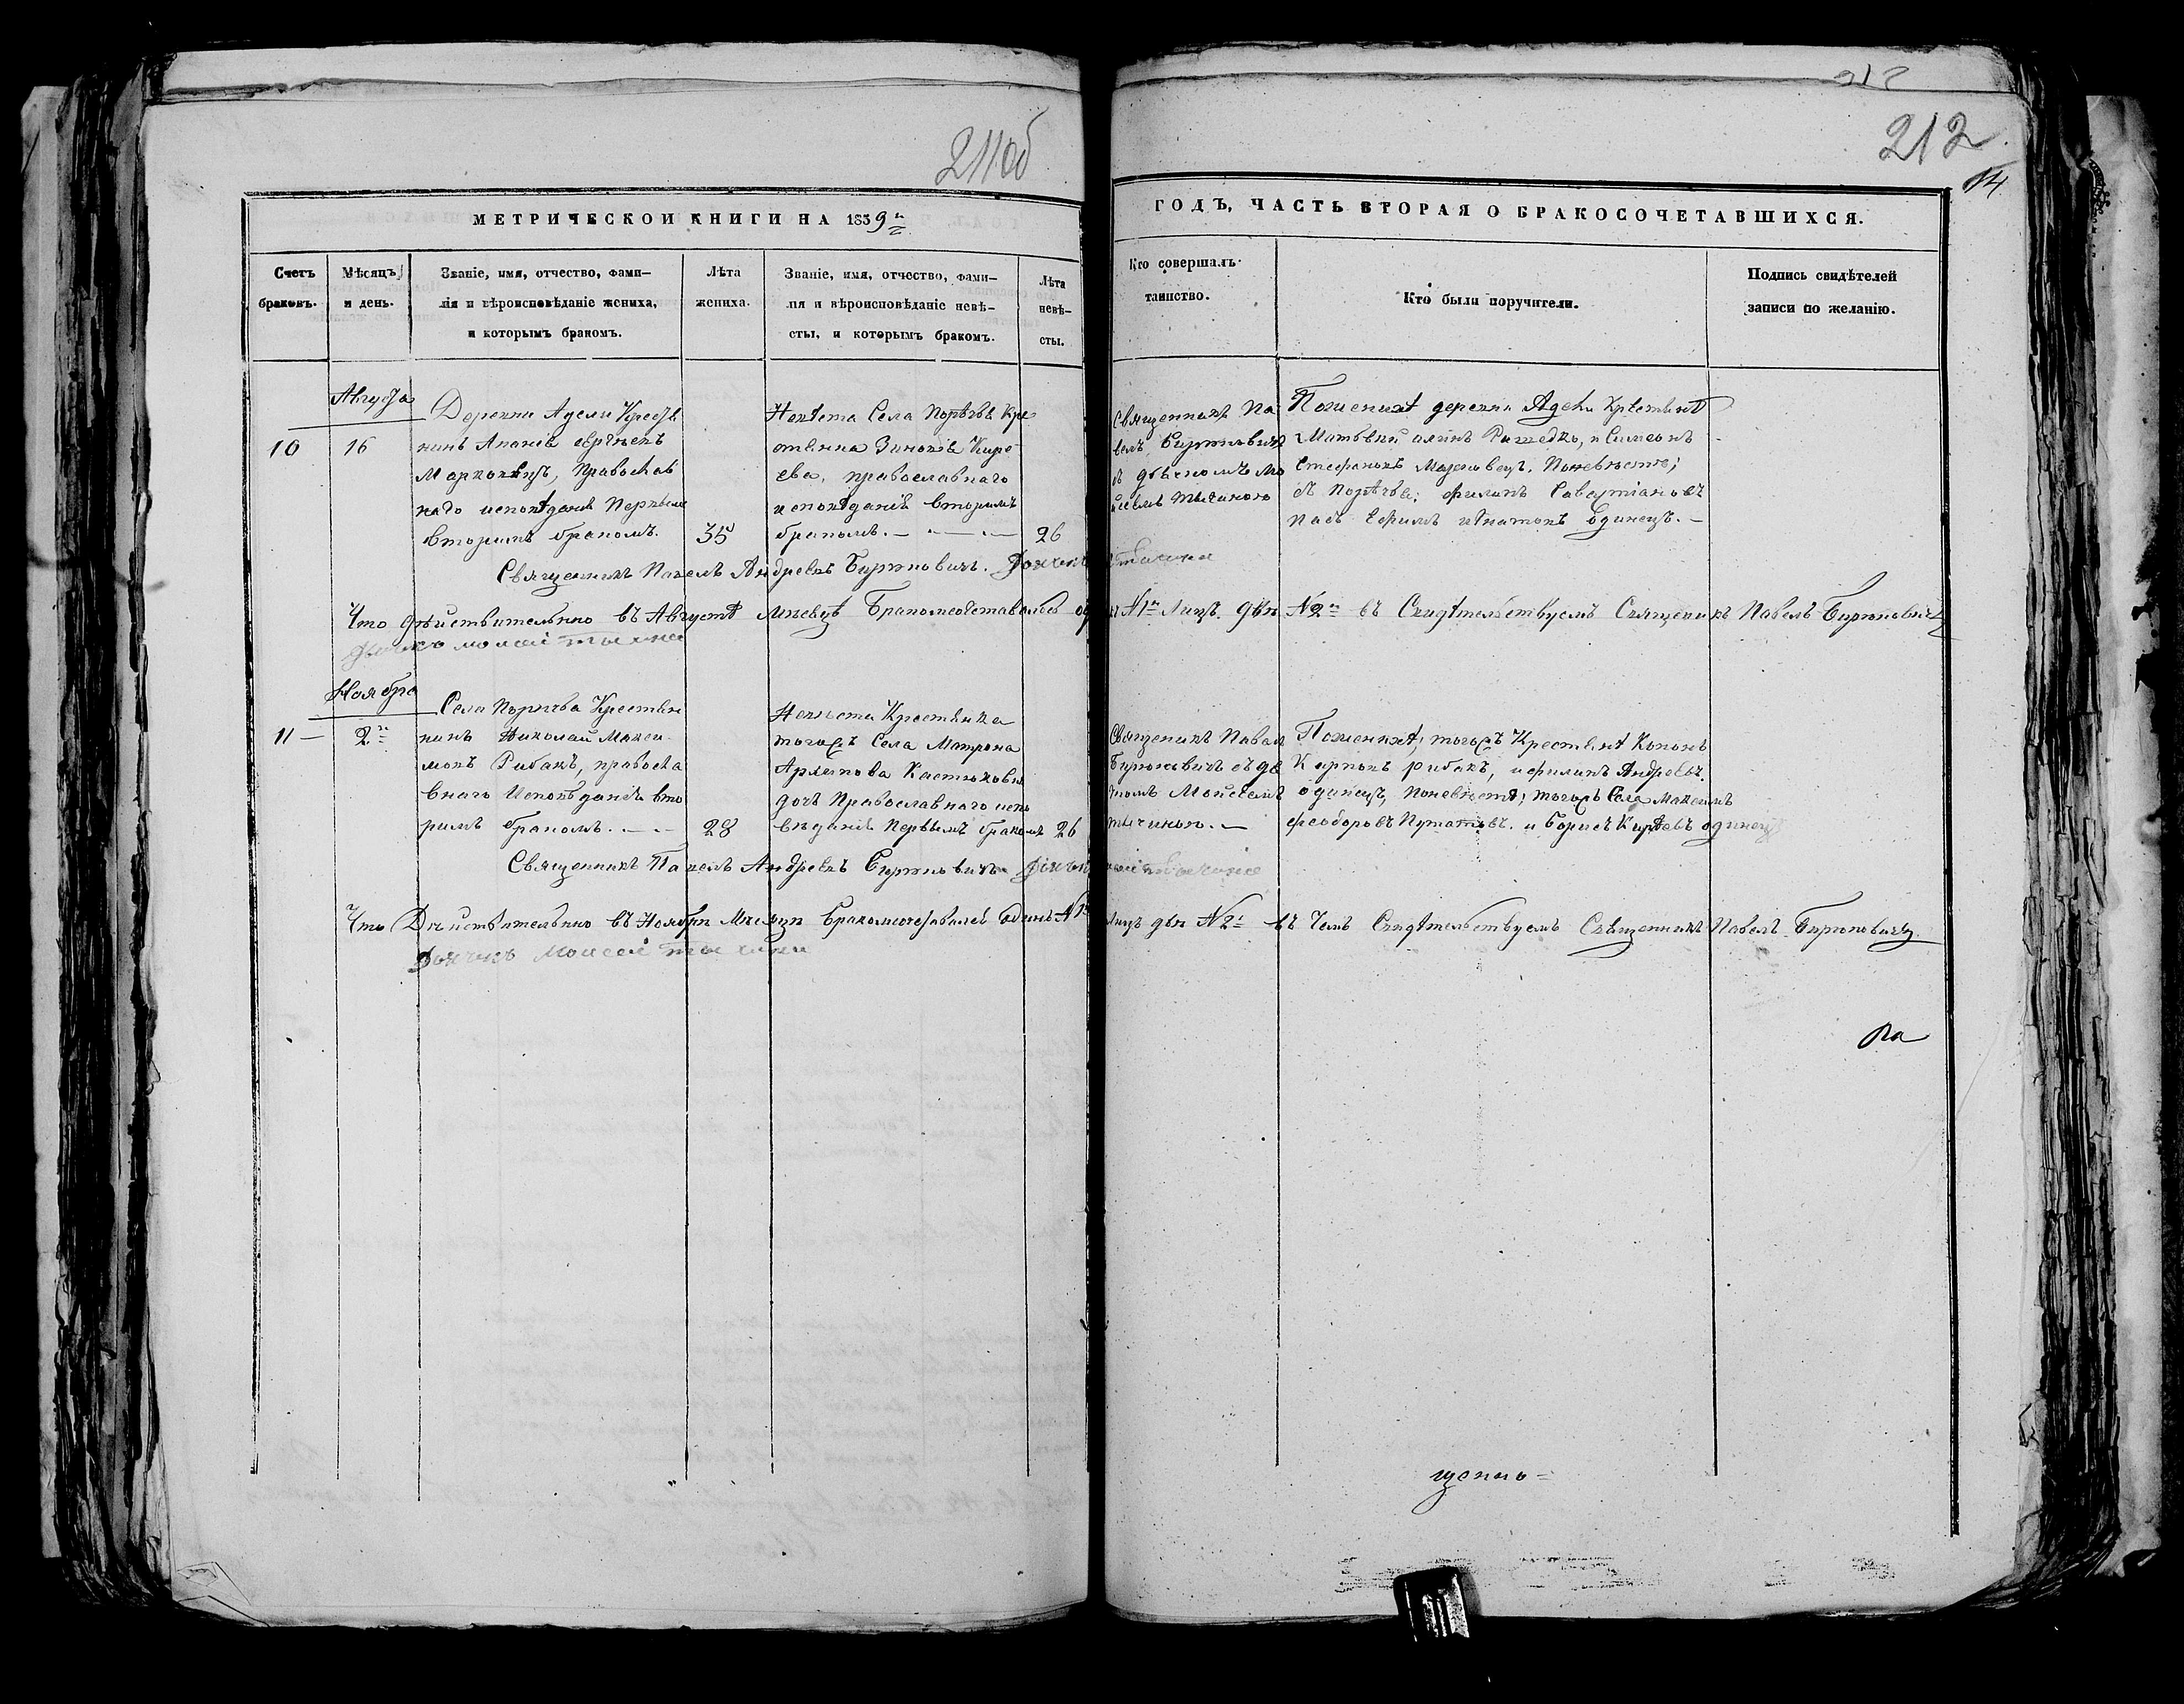 212
211об
212.
14
МЕТРИЧЕСКОЙ КНИГИ НА 1839й
ГОДЪ, ЧАСТЬ ВТОРАЯ О БРАКОСОЧЕТАВШИХСЯ.
Счетъ
браковъ.
Мѣсяцъ
и день.
Званіе, имя, отчество, фами-
лія и вѣроисповѣданіе жениха,
и которымъ бракомъ.
Лѣта
жениха.
Званіе, имя, отчество, фами-
лія и вѣроисповѣданіе невѣ-
сты, и которымъ бракомъ.
Лѣта
невѣ-
сты.
Кто совершалъ
таинство.
Кто были поручители.
Подпись свидѣтелей
записи по желанію.
Августа
10
16
Деревни Адели Крестья
нинъ
Марковецъ, Православ
наго исповѣданія Первым
вторимъ бракомъ.
35
Невѣста Села Порѣчья Кре
стянка Зиновія Кире
ева, православнаго
исповѣданія вторимъ
бракомъ.
26
Священникъ Па
велъ Бирюковичъ
съ дьячкомъ Мо
исеемъ Тычиною
По женихѣ деревни Адели Крестянѣ
Матѳей и Симеонъ
Стефановъ По невѣсте;
съ Порѣчья; Филипъ
Ефимъ Игнатовъ Одинецъ.
Священникъ Павелъ Андреевъ Бирюковичъ. Дьячокъ
Что дѣйствительно въ Августѣ Мѣсецѣ Бракомсочетавшися № 1й Лицъ два № 2й въ Свидѣтельствуемъ Священникъ Павелъ Бирюковичъ
Дьячокъ Моисей Тычина
Ноября
11
2й
Села Порѣчья Крестьян
нинъ Николай Макси
мовъ Рибакъ, правосла
внаго Исповѣданія вто
римъ бракомъ.
28
Невѣста Крестянка
тогожъ Села Матрона
Архипова Костюкови
дочъ Православнаго испо
вѣданія Первымъ бракомъ
26
Священникъ Павелъ
Бирюковичъ съ дья
чкомъ Моисеемъ
Тычиною.
По женихѣ; тогожъ Крестянѣ Кононъ
Карповъ рибакъ, и филипъ Андреевъ.
одинецъ, По невѣстѣ; тогожъ Села Максимъ
феодоровъ и Борисъ Кирѣевъ одинецъ
Священникъ Павелъ Андреевъ Бирюковичъ Дьячокъ Моисей Тычина
Что Дѣйствительно въ Ноябри Мѣсяцѣ Бракомсочетавшися Одинъ № 1й Лицъ два № 2й въ Чемъ Свидѣтельствуемъ Священникъ Павелъ Бирюковичъ
Дьячокъ Моисей Тычина